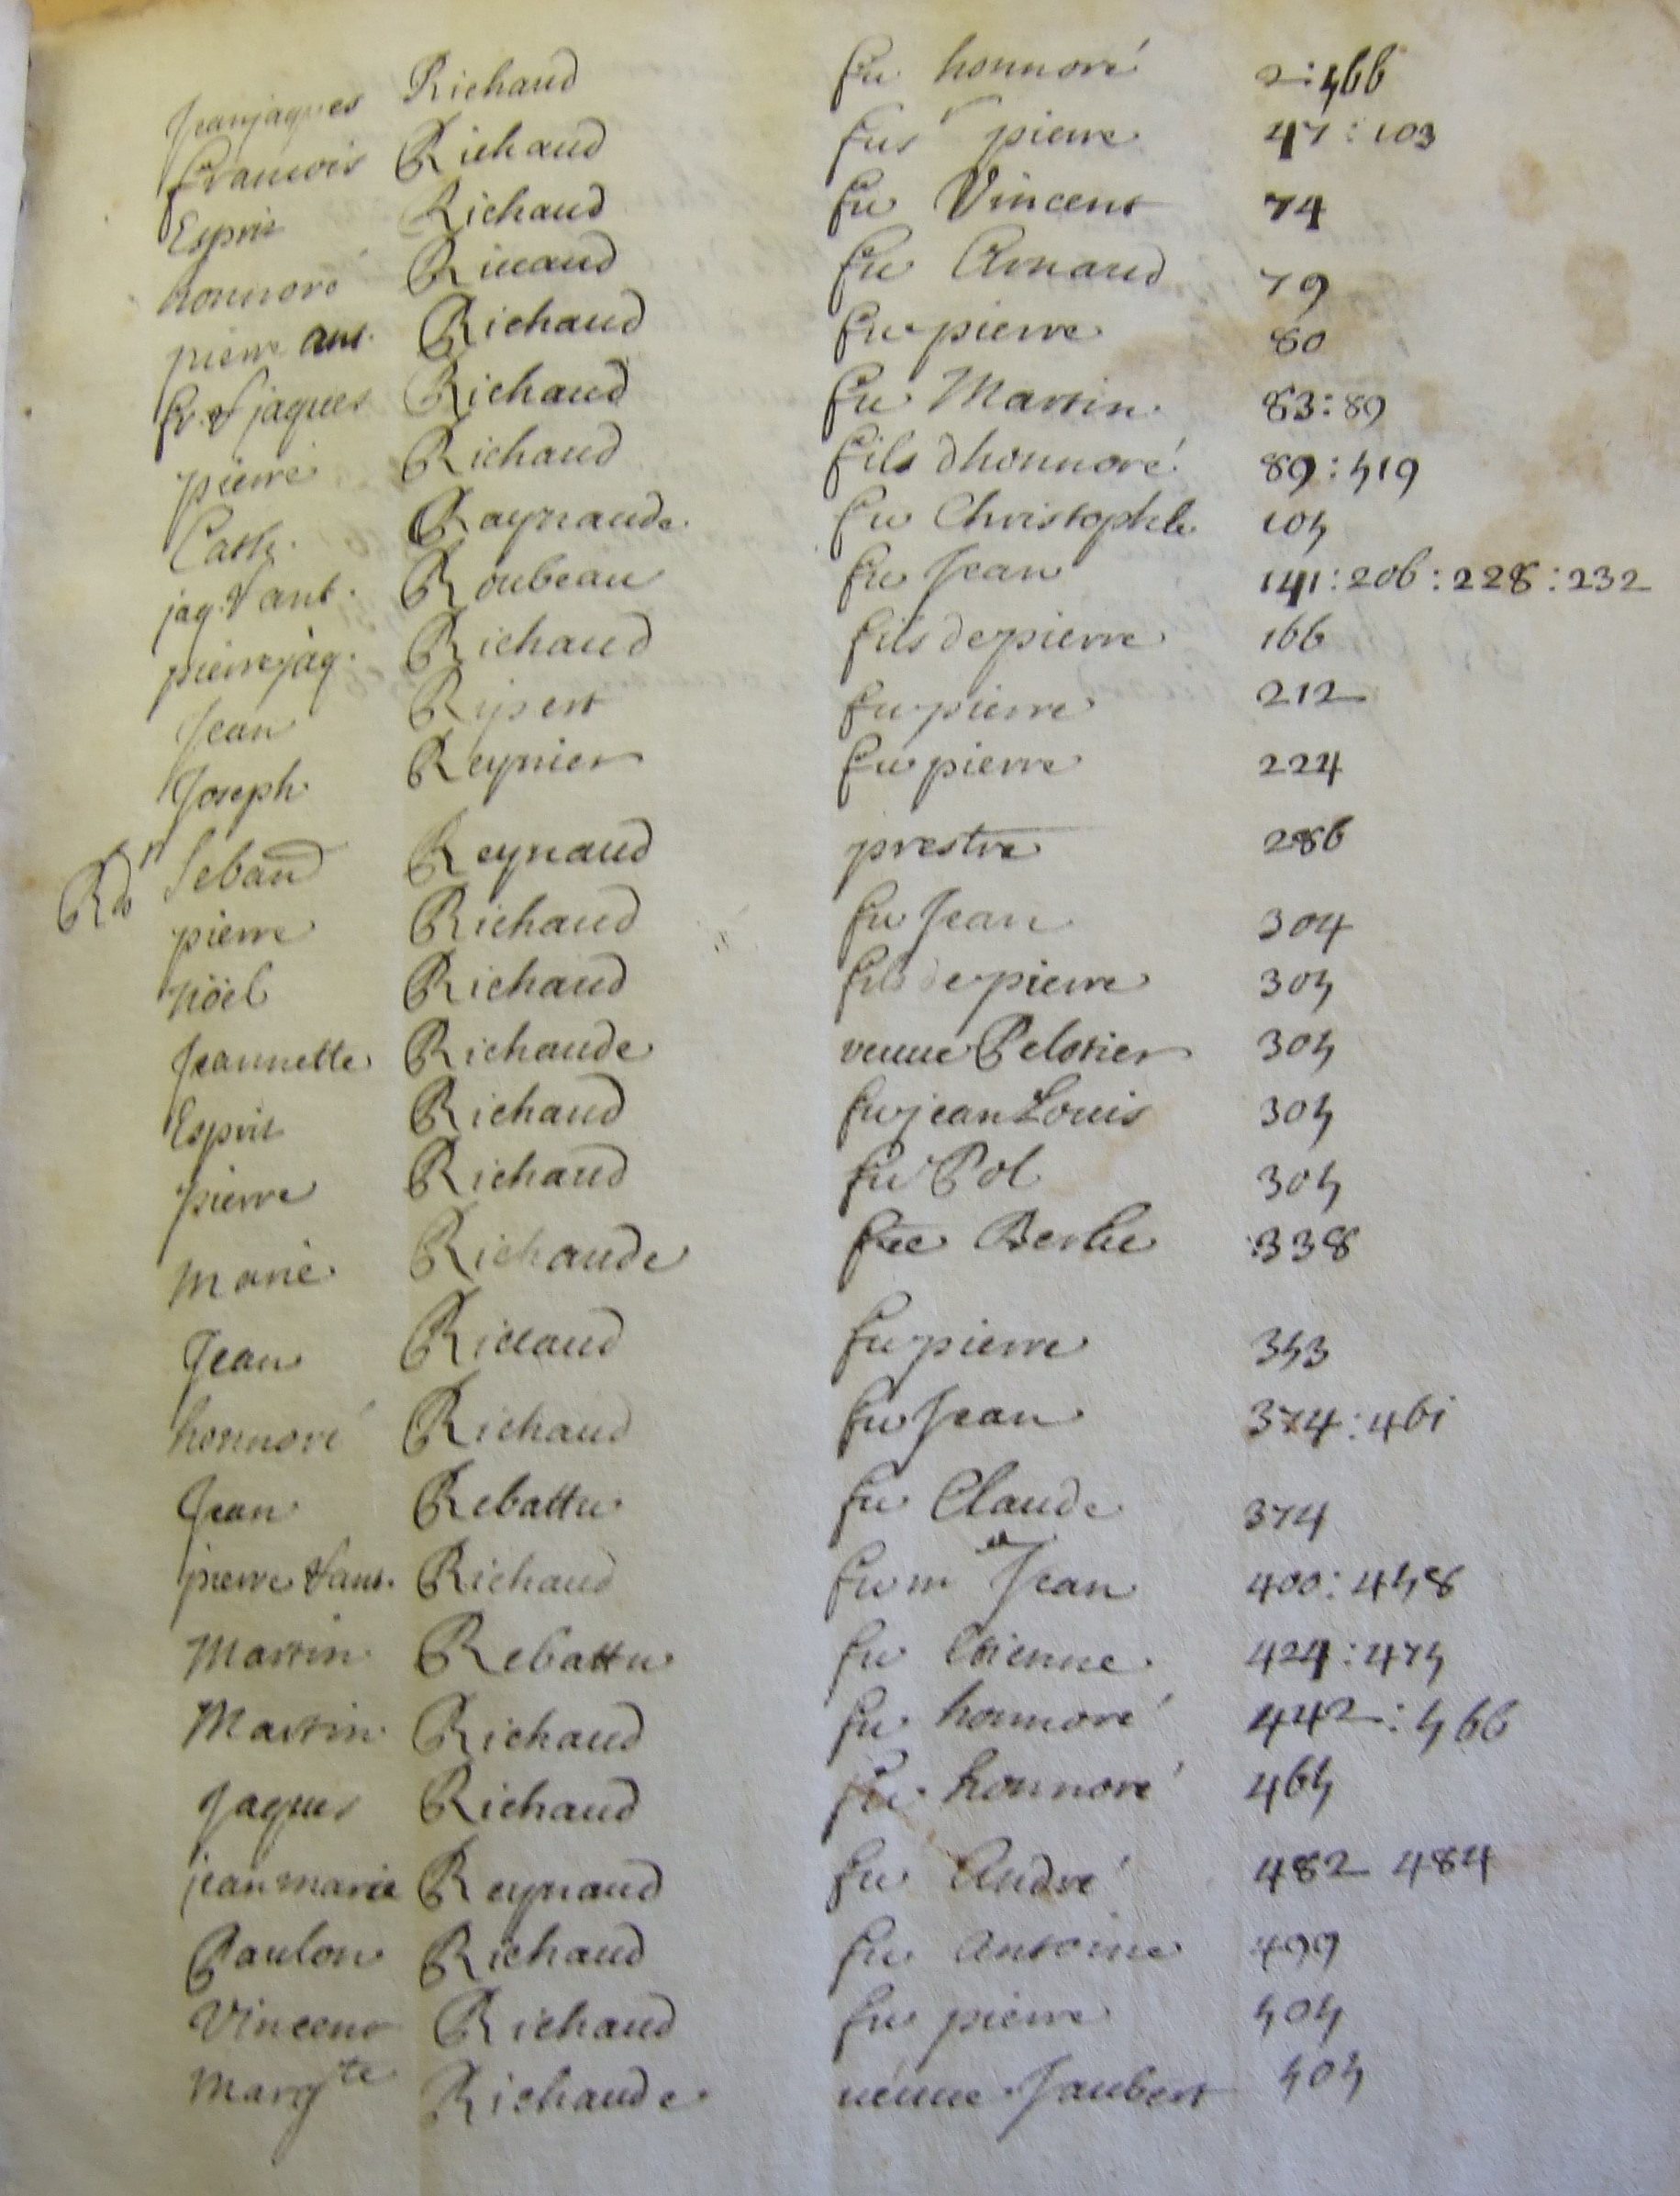 Jeanjaques Richaud fu honnoré 2:566
francois Richaud fus pierre 47:103
Esprit Richaud fu Vincent 74
honnoré Ricaud fu Arnaud 79
pierre ant. Richaud fu pierre 80
fr. & jaques Richaud fu Martin 83:89
pierre Richaud fils dhonnoré 89:519
Cath. Raynaude fu Christophle 105
jaq. & ant. Roubeau fu Jean 141:206:228:232
pierre jaq. Richaud fils de pierre 166
Jean Ripert fu pierre 212
Joseph Reynier fu pierre 224
Rd Sr Seband Reynaud prestre 286
pierre Richaud fu Jean 304
nöel Richaud fils de pierre 305
Jeannette Richaude veuue Pelotier 305
Esprit Richaud fu jean Louis 305
pierre Richaud fu Pol 305
Marie Richaude fée Berlie 338
Jean Ricaud fu pierre 353
honnoré Richaud fu Jean 374:461
Jean Rebattu fu Claude 374
pierre & ant. Richaud fu me Jean 400:458
Martin Rebattu fu Etienne 424:475
Martin Richaud fu honnoré 442:566
Jaques Richaud fu honnoré 465
jean marie Reynaud fu André 482 484
Paulon Richaud fu Antoine 499
Vincent Richaud fu pierre 505
Margte Richaude ueuue Jaubert 505